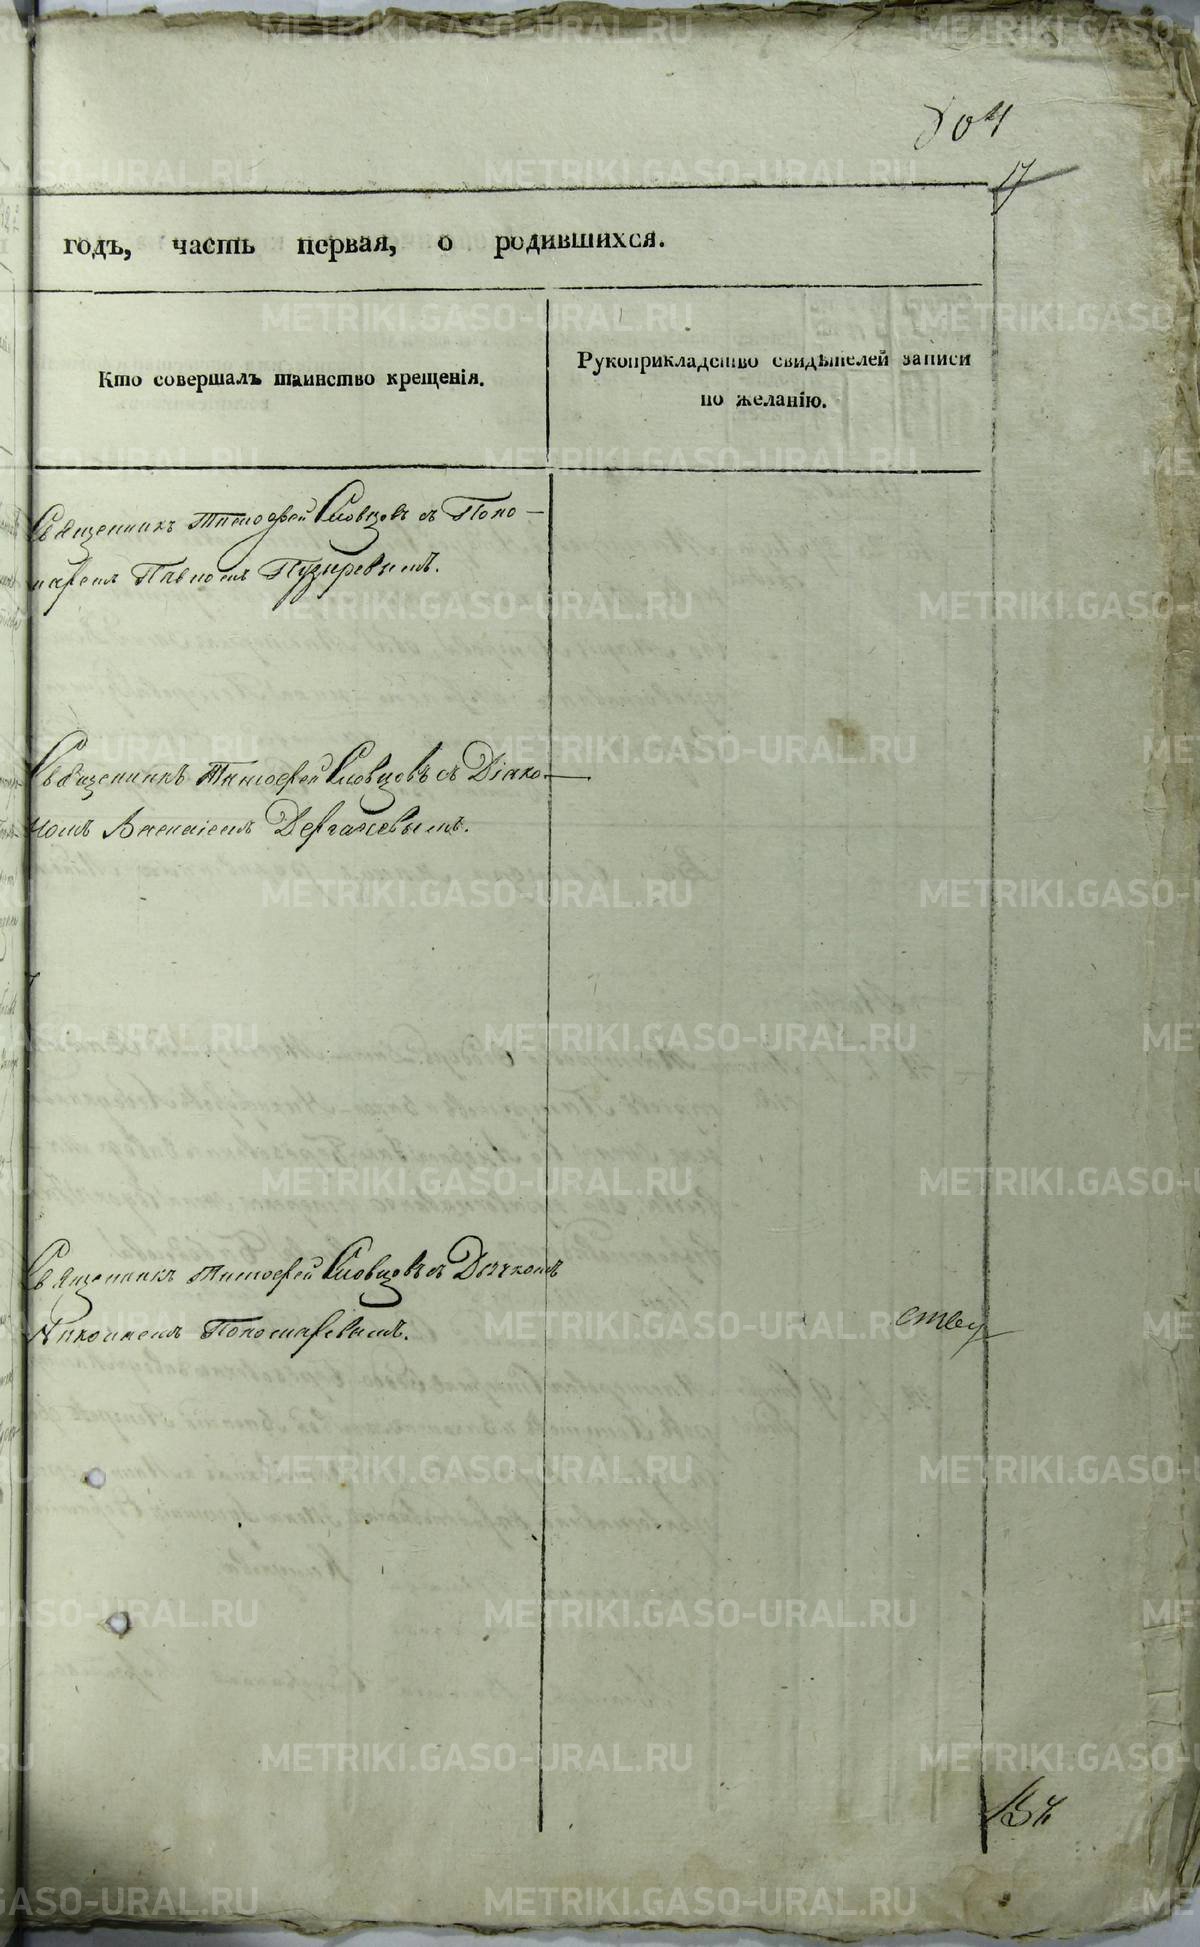 804
17
годъ, часть первая, о родившихся.
Кто совершалъ таинство крещенія.
Рукоприкладство свидѣтелей записи
по желанію.
Священникъ Тимофей Словцовъ съ Поно-
маремъ Павломъ Пузыревымъ.
Священникъ Тимофей Словцовъ съ Діако-
номъ Дергачевымъ.
Священникъ Тимофей Словцовъ съ Дьячкомъ
Пономаревымъ.
ству
METRIKI.GASO-URAL.RU